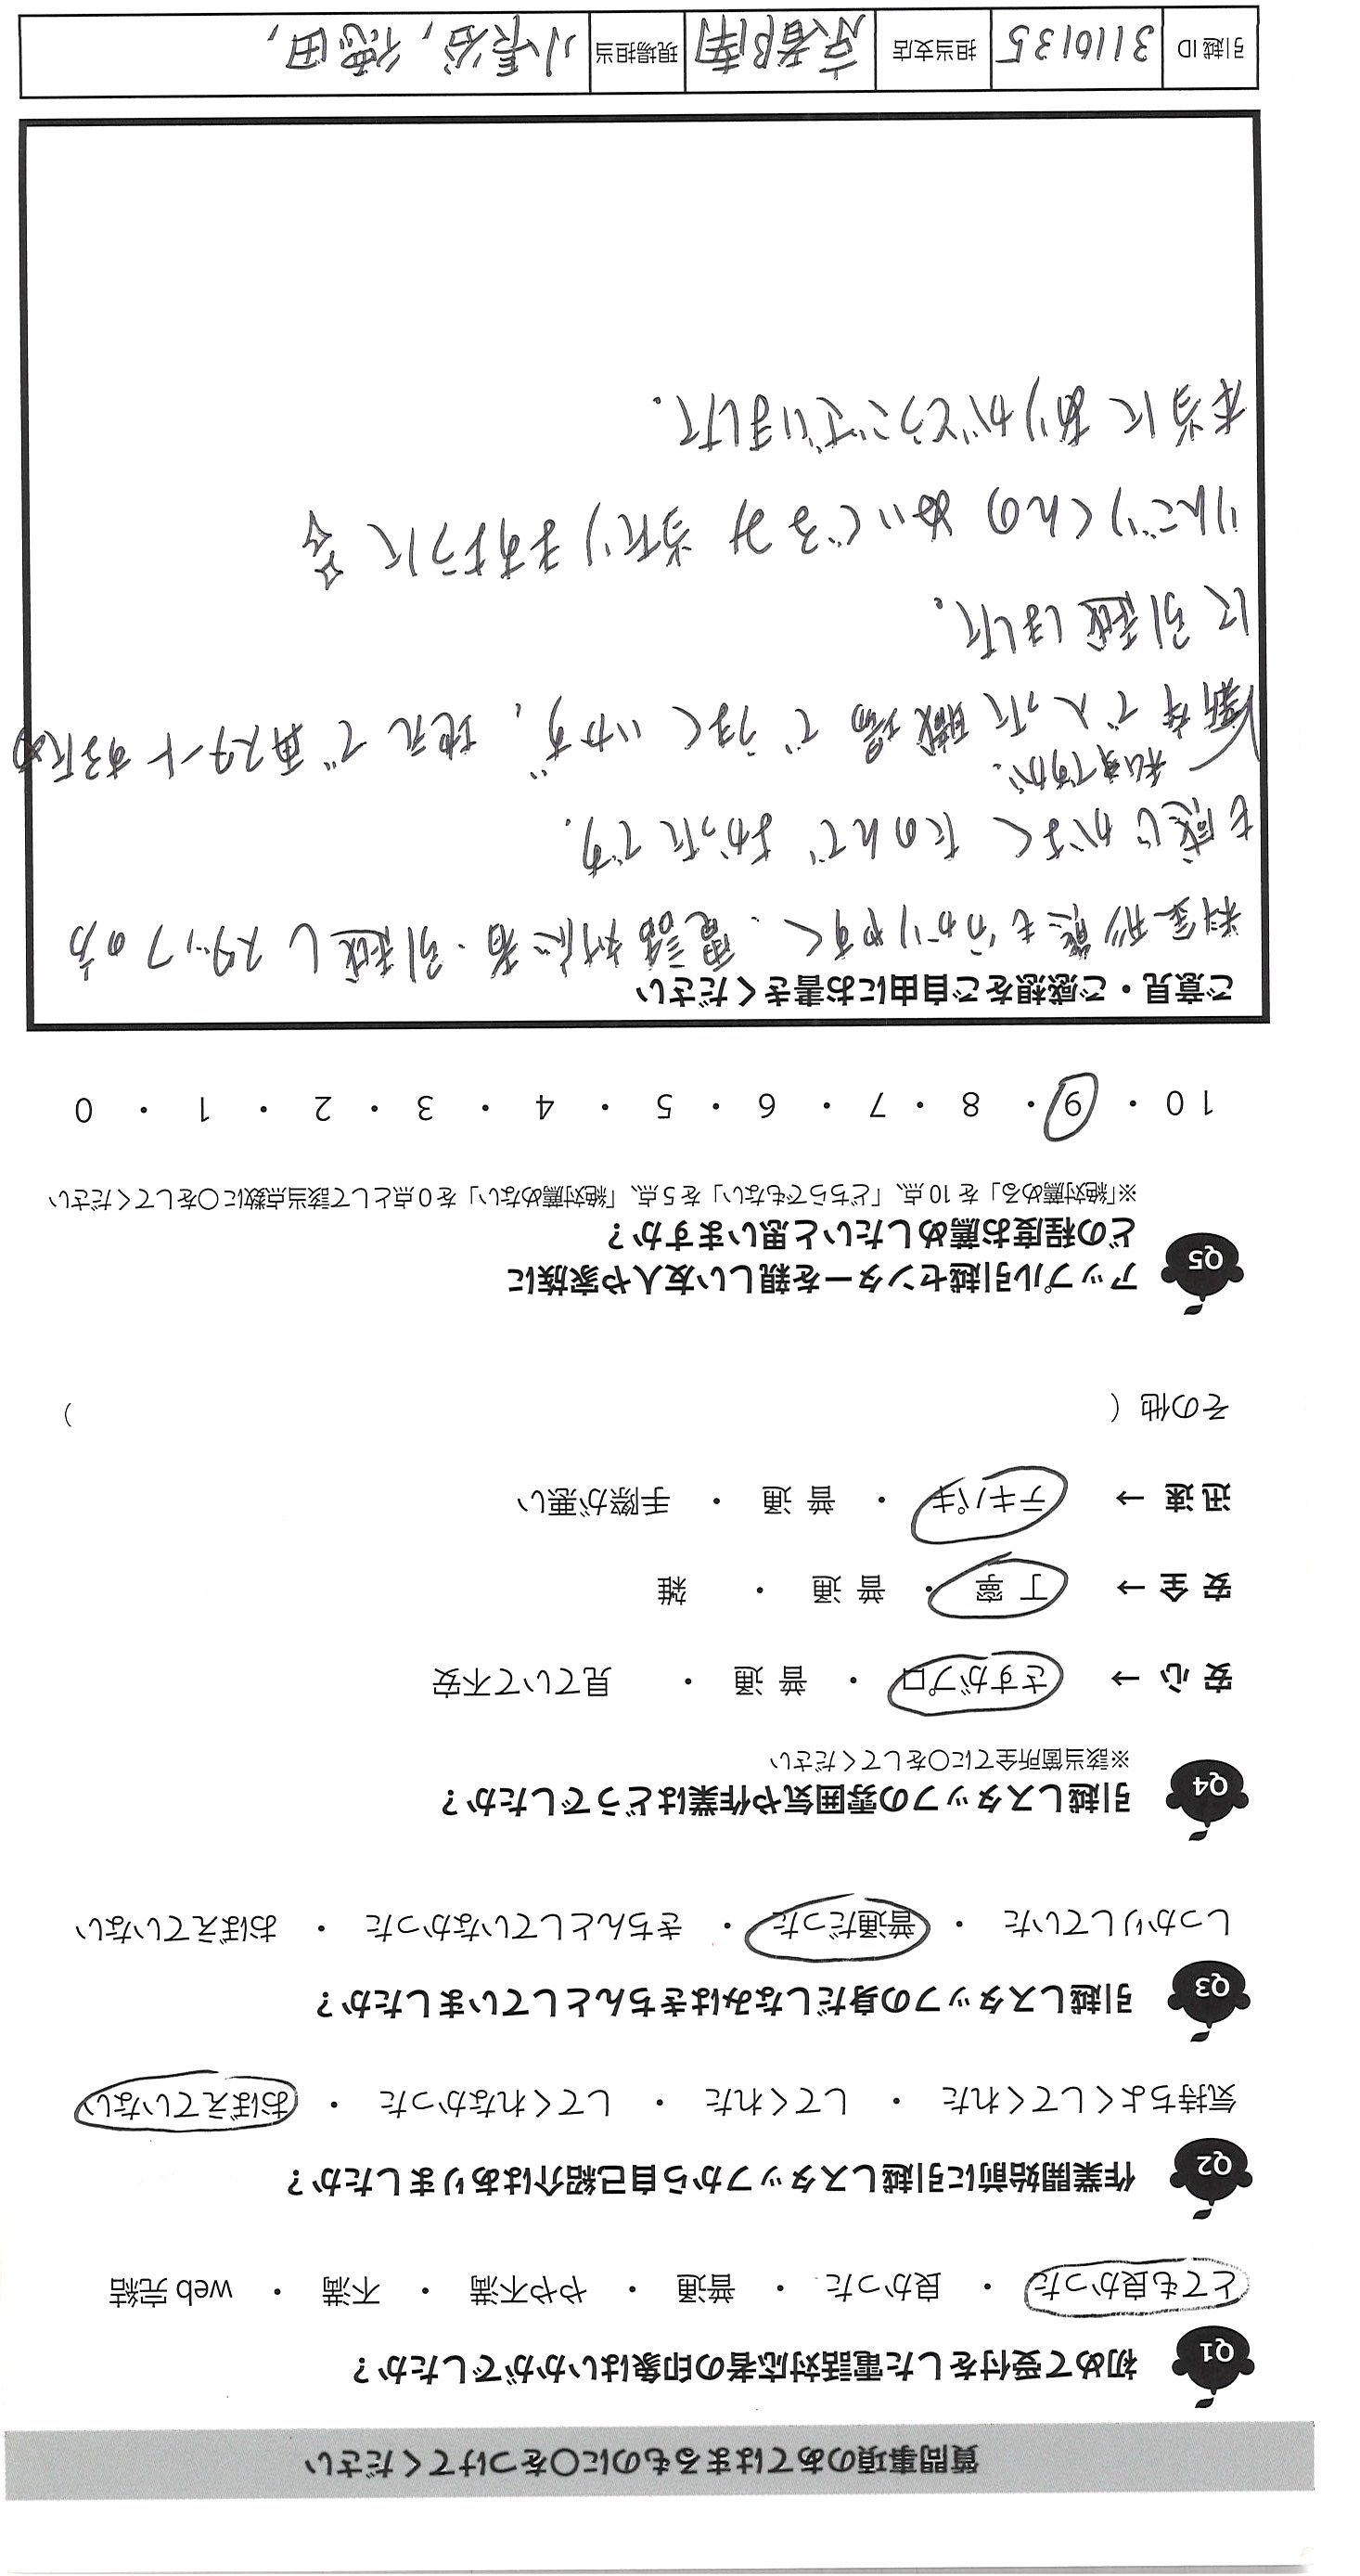 質問事項のあてはまるものに○をつけてください
Q1 初めて受付をした電話対応者の印象はいかがでしたか？
とても良かった ・ 良かった ・ 普通 ・ やや不満 ・ 不満 ・ web 完結
Q2 作業開始前に引越しスタッフから自己紹介はありましたか？
気持ちよくしてくれた ・ してくれた ・ してくれなかった ・ おぼえていない
Q3 引越しスタッフの身だしなみはきちんとしていましたか？
しっかりしていた ・ 普通だった ・ きちんとしていなかった ・ おぼえていない
Q4 引越しスタッフの雰囲気や作業はどうでしたか？
※該当箇所全てに○をしてください
安 心 → さすがプロ ・ 普 通 ・ 見ていて不安
安 全 → 丁 寧 ・ 普 通 ・ 雑
迅 速 → テキパキ ・ 普 通 ・ 手際が悪い
その他（ ）
Q5 アップル引越センターを親しい友人や家族に
どの程度お薦めしたいと思いますか？
※「絶対薦める」を 10 点、「どちらでもない」を 5 点、「絶対薦めない」を 0 点として該当点数に○をしてください
10 ・ 9 ・ 8 ・ 7 ・ 6 ・ 5 ・ 4 ・ 3 ・ 2 ・ 1 ・ 0
ご意見・ご感想をご自由にお書きください
料金形態も分かりやすく、電話対応者・引越しスタッフの方
も感じがよく たのんで よかったです。
私事ですが、
新卒で入った職場でうまくいかず、地元で再スタートするため
に引越しました。
りんごりくんのぬいぐるみ当たりますように
本当にありがとうございました。
引越 ID 3110135 担当支店 京都南 現場担当 小長谷, 徳田,